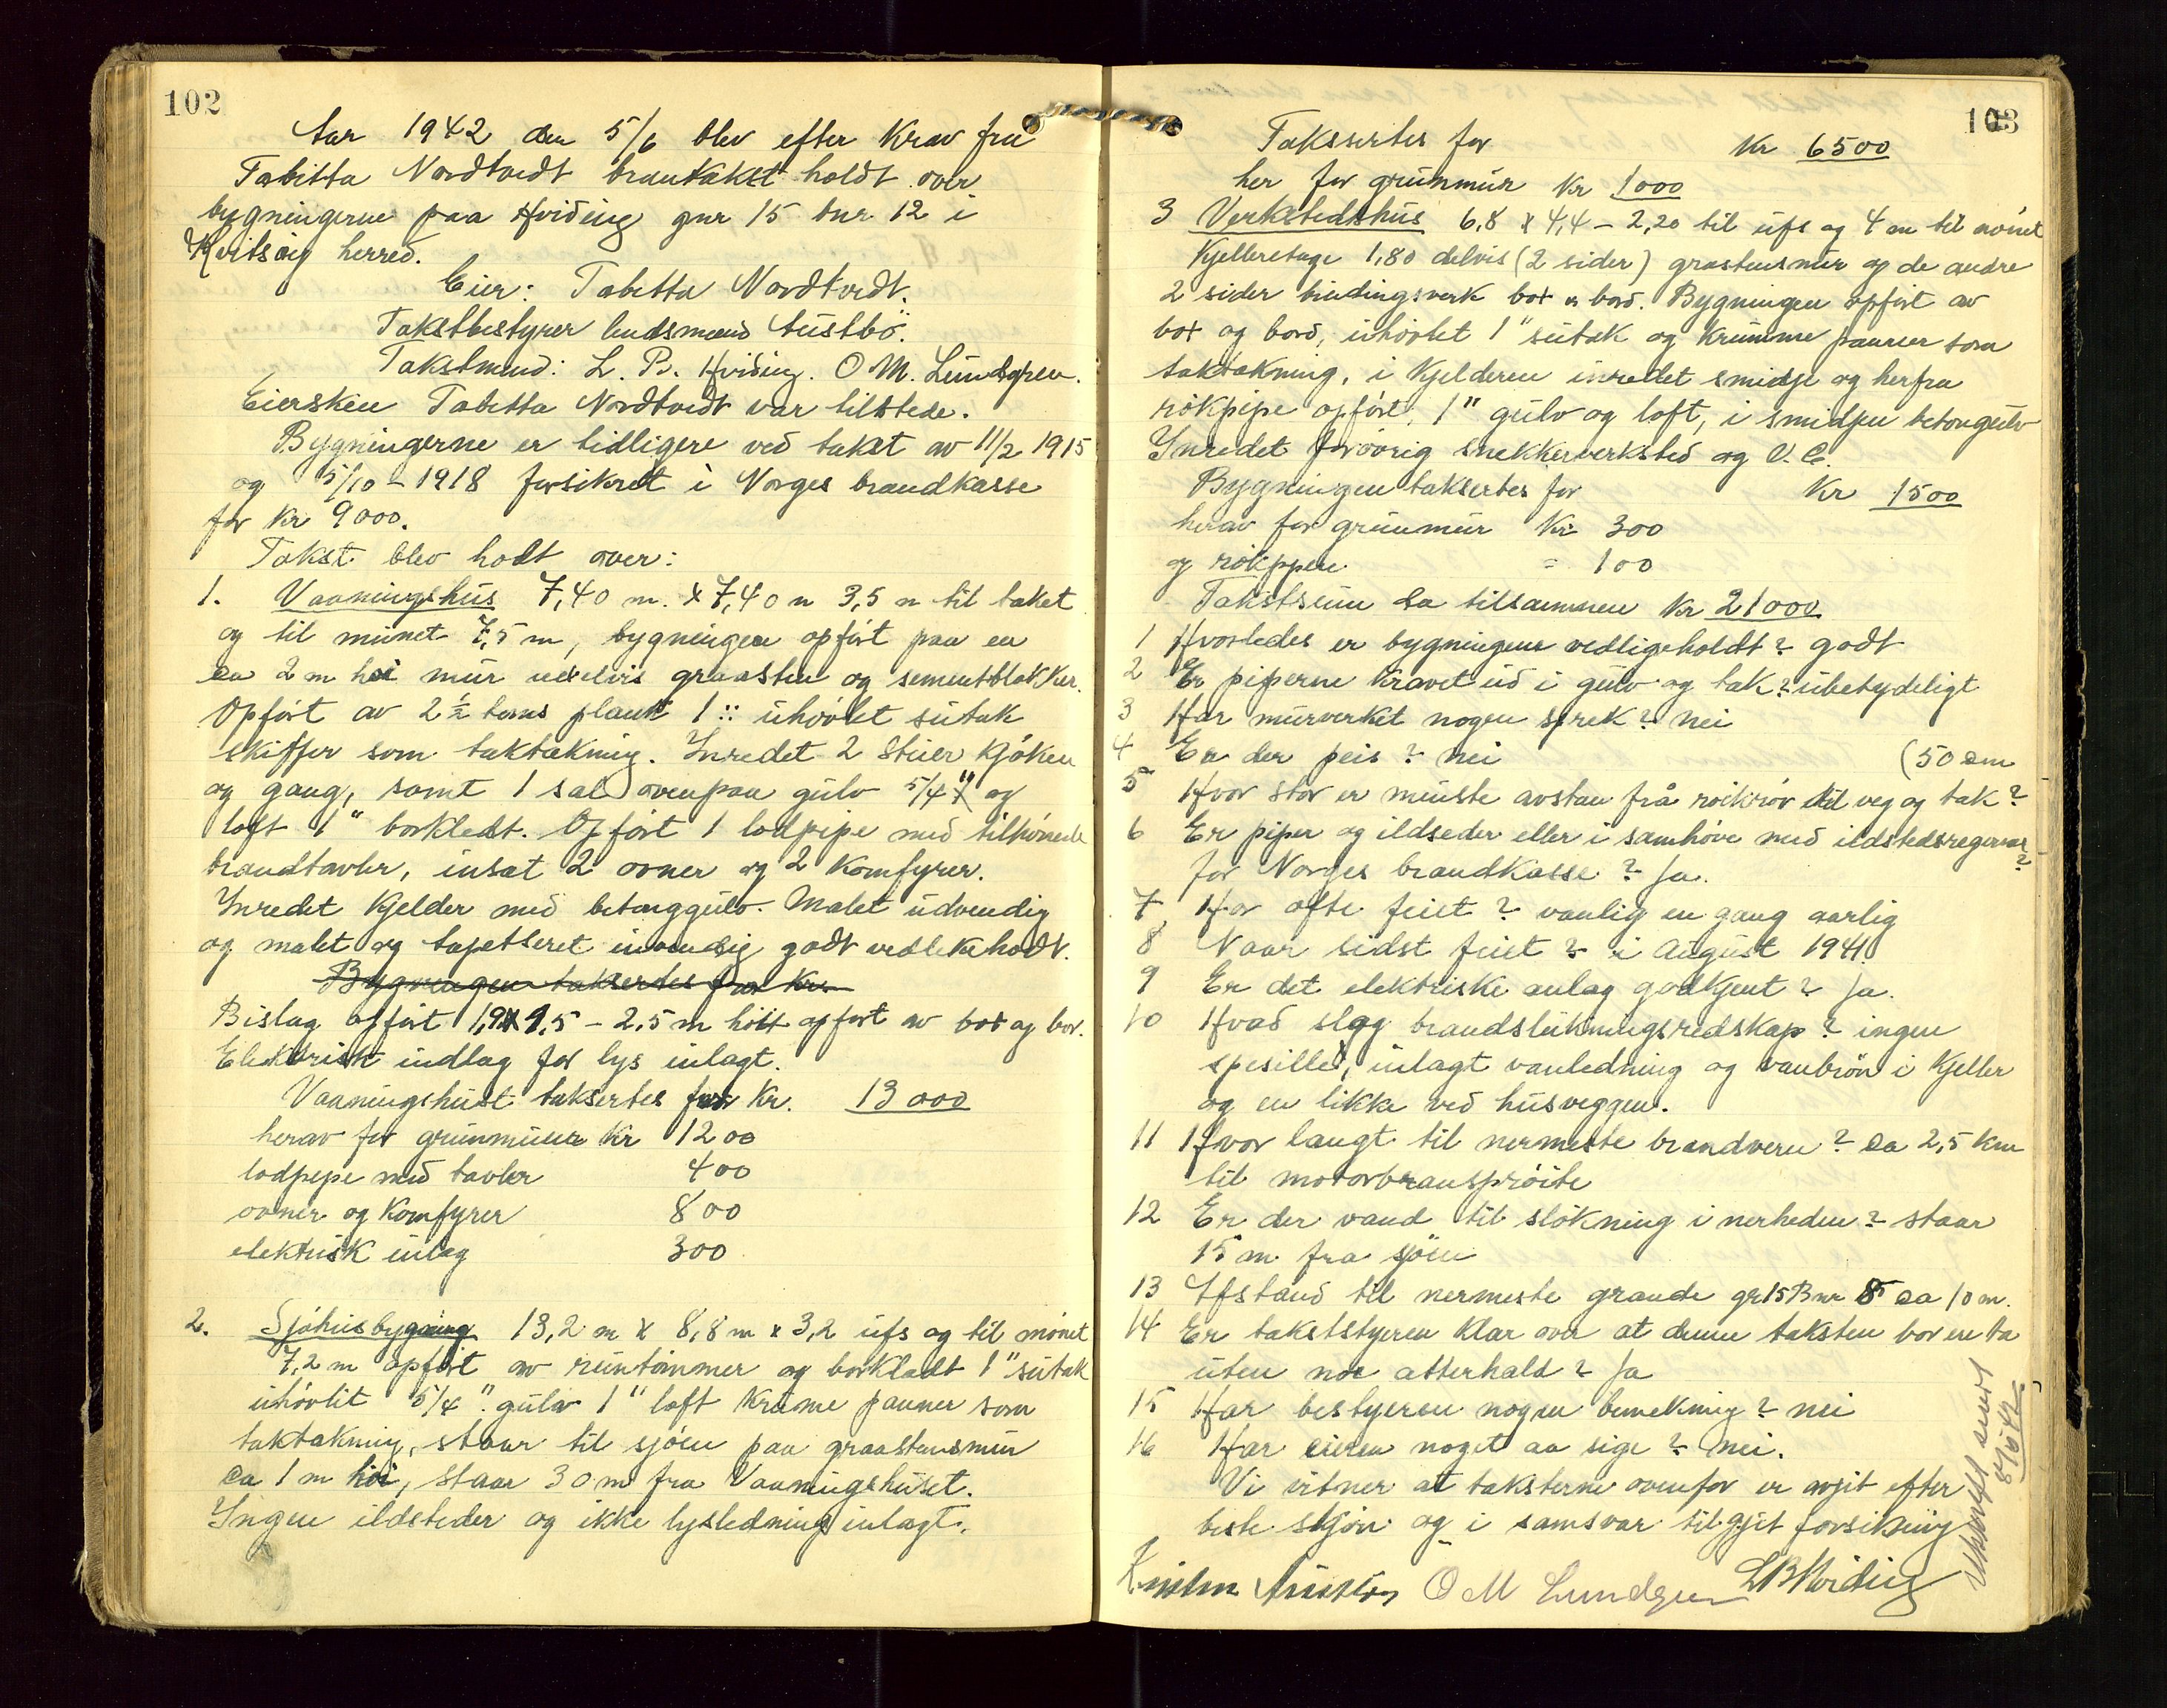 102
Aar 1942 den 5/6 blev efter Krav fra
Tabitta Nordtvedt brantakst holdt over
bygningerne paa Hviding gnr 15 bnr 12 i
Kvitsøy herred.
Eier: Tabetta Nordtvedt.
Takstbestyrer lendsmand Austbö.
Takstmend: L. B. Hviding. O M. Lundgren.
Eiersken Tabetta Nordtvedt var tilstede.
Bygningerne er tidligere ved takst av 11/2 1915
og 5/10 - 1918 forsikret i Norges brandkasse
for Kr 9000.
Takst blev holt over:
1. Vaaningshus 7,40 m. x 7,40 m 3,5 m til taket
og til mönet 7,5 m, bygningen opfört paa en
ca 2 m höi mur utelvis graasten og sementblokker.
Opfört av 2 1/2 toms plank 1" uhövlet sutak
skiffer som taktækning. Inredet 2 Stuer Kjöken
og gang, samt 1 sal ovenpaa gulv 5/4" og
loft 1" borkledt. Opfört 1 lodpipe med tilhörende
brandtavler, insat 2 ovner og 2 Komfyrer.
Inredet Kjelder med betonggulv. Malet udvendig
og malet og tapetseret invendig godt vedlikehodt.
Bygningen taksertes for Kr.
Bislag opfört 1,9 x 1,5 - 2,5 m höit opfört av bot og bor.
Elektrisk indlag for lys inlagt.
Vaaningshust taksertes for Kr. 13 000
herav for grunmuren Kr 1200
lodpepe med tavler 400
ovner og Komfyrer 800
elektrisk inlag 300
2. Sjöhusbygning 13,2 m x 8,8 m x 3,2 ufs og til mönet
7,2 m opfört av runtömmer og borkladt 1" sutak
uhövlit 5/4" gulv 1" loft Krume panner som
taktakning, staar til sjöen paa graastensmur
ca 1 m höi, staar 30 m fra Vaaningshuset.
Ingen ildsteder og ikke lysledning inlagt.
103
Takssertes for Kr 6500
her for grunmur Kr 1000
3 Verkstedshus 6,8 x 4,4 - 2,20 til ufs og 4 m til mönet
Kjelleretage 1,80 delvis (2 sider) grastensmur og de andre
2 sider bindingsverk bot og bord. Bygningen opfört av
bot og bord, uhövlet 1" sutak og Krumme panner som
taktakning, i Kjelderen inredet smidje og herfra
rökpipe opfört. 1" gulv og loft, i smidjen betongulv
Inredet forövrig snekkerverksted og V. C.
Bygningen taksertes for Kr 1500
herav for grunmur Kr 300
og rökppen = 100
Takstsum da tilsammen Kr 21000
1 Hvorledes er bygningene vedligeholdt? godt
2 Er piperne Kravet ud i gulv og tak? ubetydeligt
3 Har murverket nogen sprek? nei
4 Er der peis? nei (50 cm
5 Hvor stor er minste avstan frå röikrör til veg og tak?
6 Er piper og ildseder eller i samhöve med ildstedsregervar
for Norges brandkasse? Ja. ?
7 Hor ofte feiet? vanlig en gang aarlig
8 Naar sidst feiet? i August 1941
9 Er det elektriske anlag godkjent? Ja.
10 Hvad slag brandslukningsredskap? ingen
spesille, inlagt vanledning og vanbrön i Kjeller
og en likke ved husveggen.
11 Hvor langt til nermeste brandvern? ca 2,5 km
til motorbranspröite
12 Er der vand til slökning i nerheden? staar
15 m fra sjöen
13 Afstand til nermeste grande gr 15 Bnr 8 ca 10 m.
14 Er takststyeren klar over at denne taksten bor en ta
uten noe atterhald? Ja
15 Har bestyeren nogen bemekning? nei
16 Har eieren noget aa sige? nei.
Vi vitner at taksterne ovenfor er avgit efter
beste skjön og i samsvar til gjit forsikring
Austbö O M Lundgren L B Hviding
Utskrift sendt
8/6 42